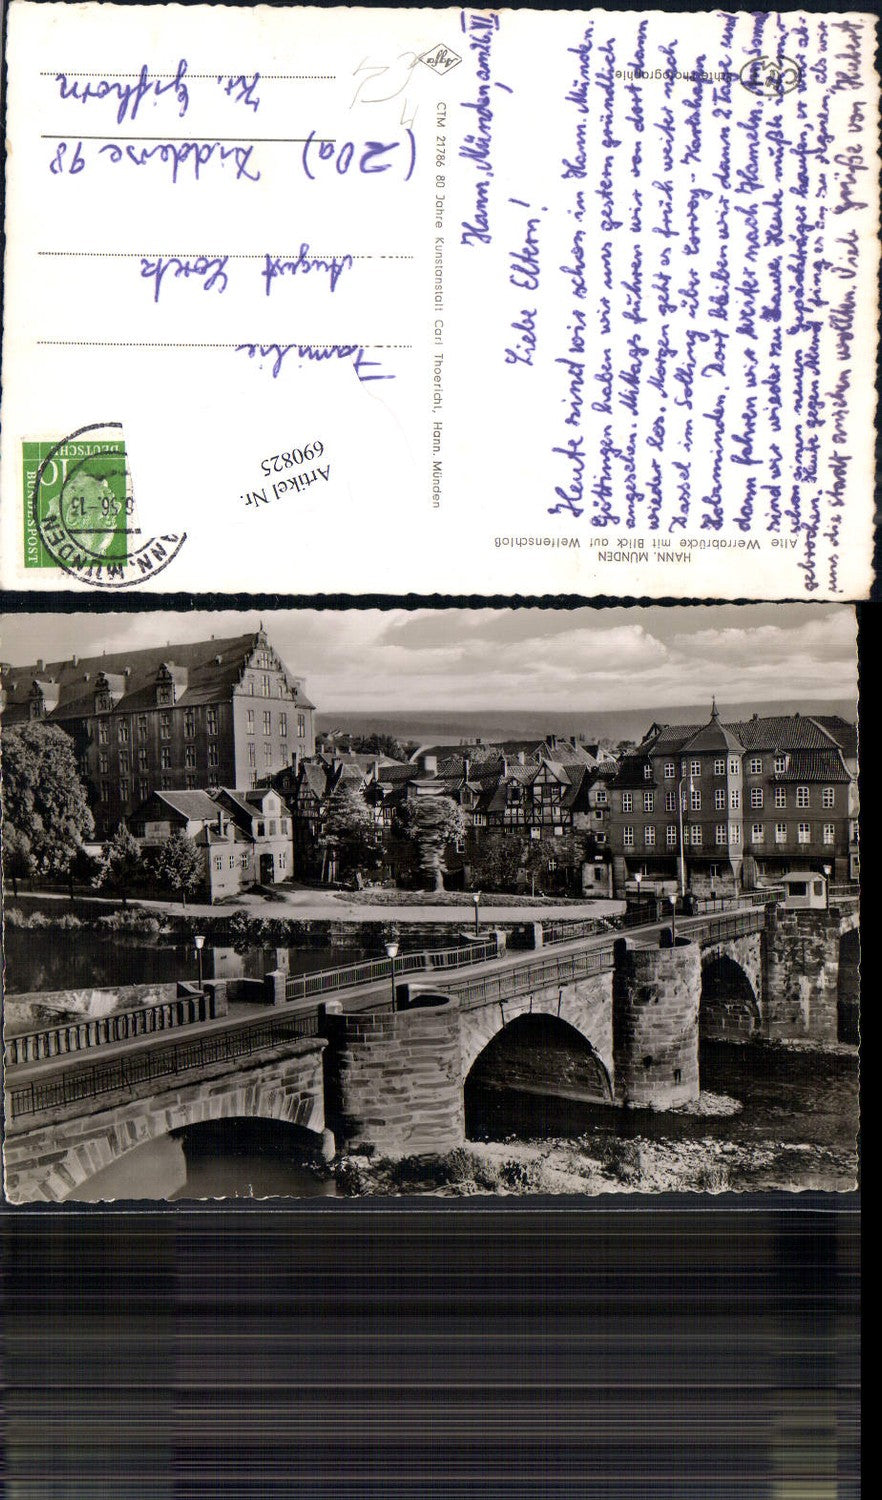 HANN. MÜNDEN
Alte Werrabrücke mit Blick auf Welfenschloß
Echte Photographie
Hann. Münden, am 26. VI.
Liebe Eltern!
Heute sind wir schon in Hann. Münden.
Göttingen haben wir uns gestern gründlich
angesehen. Mittags führen wir von dort dann
wieder los. Morgen geht es früh weiter nach
Kassel im Solling über Corvey - Karlshafen
Holzminden. Dort bleiben wir dann 2 Tage und
dann fahren wir weiter nach Hameln.
sind wir wieder zu Hause. Heute mußte ich mir
schon einen neuen Gepäckträger kaufen, er war ab-
gebrochen. Heute gegen Mittag fing es an zu regnen, als wir
uns die Stadt ansehen wollten. Viele Grüße von Hubert
CTM 21786 80 Jahre Kunstanstalt Carl Thoericht, Hann. Münden
Agfa
DEUTSCHE
BUNDESPOST
10
HANN. MÜNDEN
6.56.-15
Familie
August
(20a) Didderse 98
Kr. Gifhorn
Artikel Nr.
690825